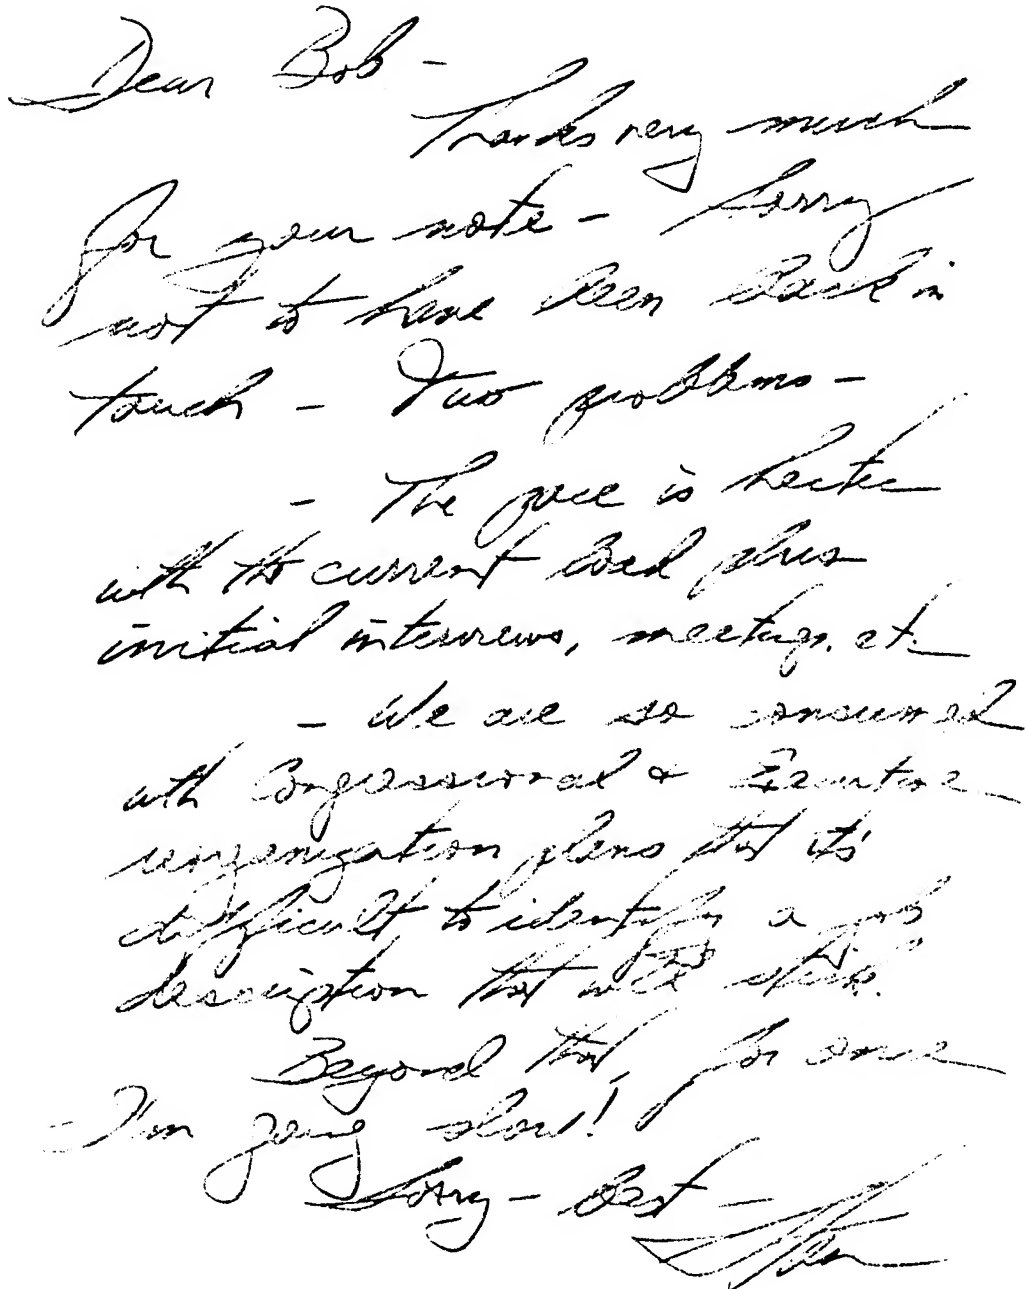 Dear Bob -
Thanks very much
for your note - Sorry
not to have been back in
touch - Two problems -
- The pace is hectic
with the current load plus
initial interviews, meetings, etc
- We are so consumed
with Congressional & Executive
reorganization plans that it's
difficult to identify a job
description that will "stick."
Beyond that, for once
I'm going slow!
Sorry - Best -
Stan